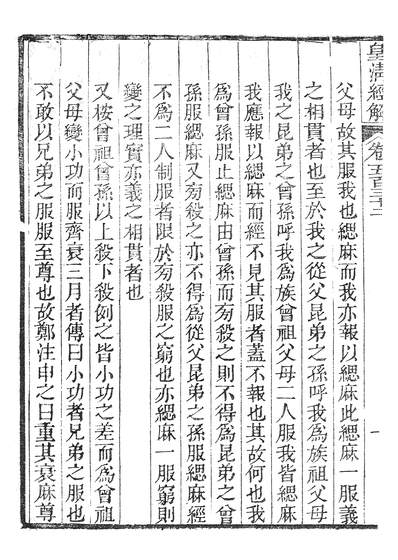 皇清經解 卷五百三十二 一
父母故其服我也緦麻而我亦報以緦麻此緦麻一服義
之相貫者也至於我之從父昆弟之孫呼我爲族祖父母
我之昆弟之曾孫呼我爲族曾祖父母二人服我皆緦麻
我應報以緦麻而經不見其服者蓋不報也其故何也我
爲曾孫服止緦麻由曾孫而旁殺之則不得爲昆弟之曾
孫服緦麻又旁殺之亦不得爲從父昆弟之孫服緦麻經
不爲二人制服者限於旁殺服之窮也亦緦麻一服窮則
變之理實亦義之相貫者也
又桉曾祖曾孫以上殺下殺例之皆小功之差而爲曾祖
父母變小功而服齊衰三月者傳曰小功者兄弟之服也
不敢以兄弟之服服至尊也故鄭注申之曰重其衰麻尊